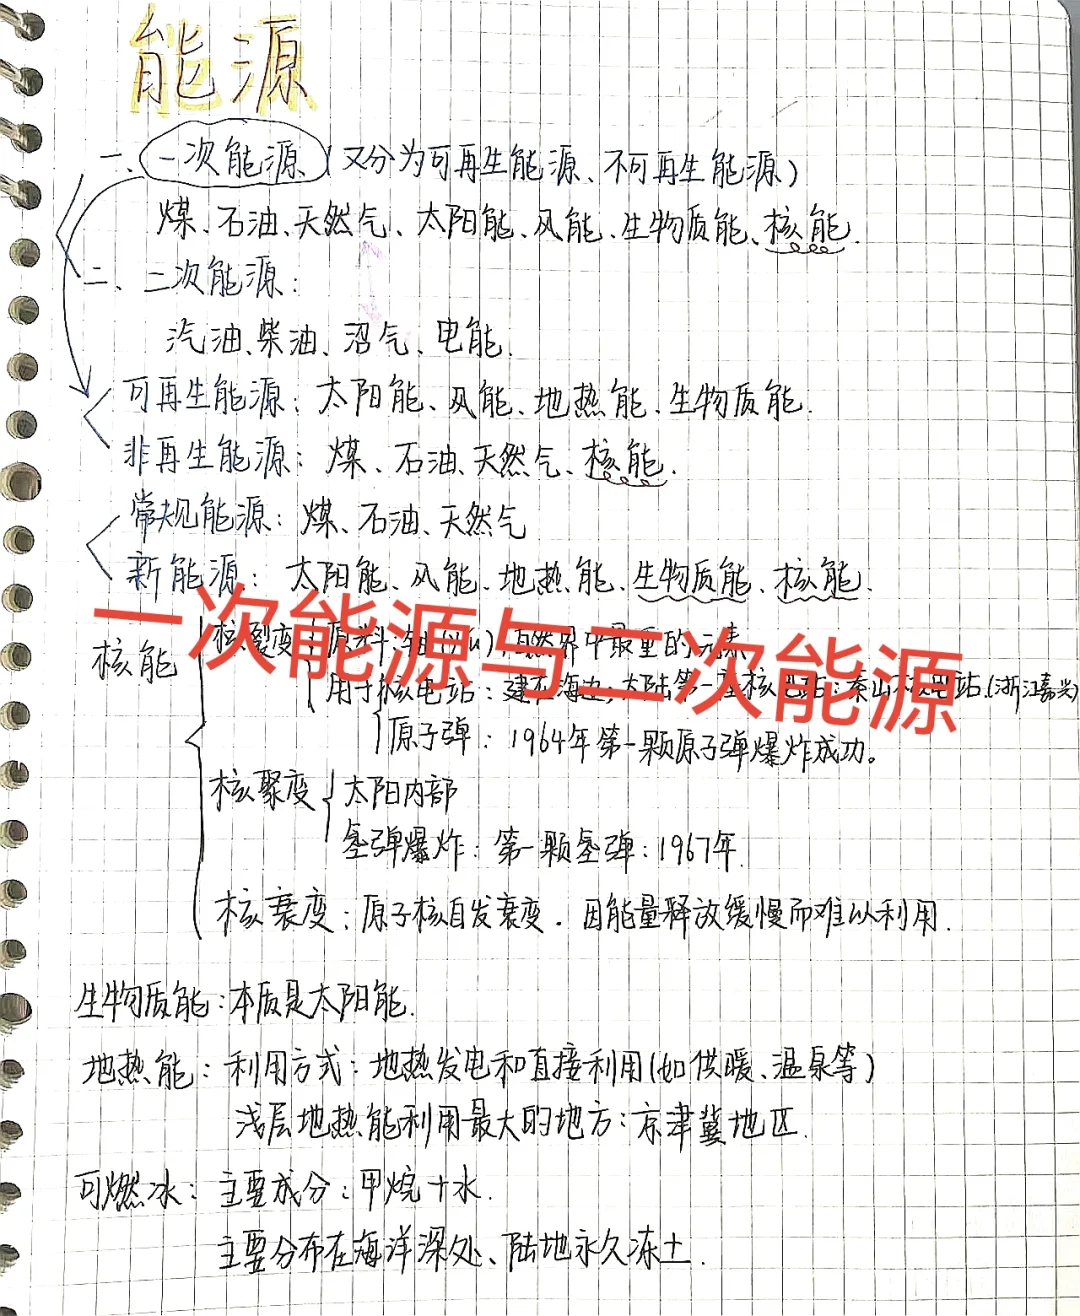 能源
一、一次能源(又分为可再生能源、不可再生能源)
煤、石油、天然气、太阳能、风能、生物质能、核能.
二、二次能源:
汽油、柴油、沼气、电能.
可再生能源: 太阳能、风能、地热能、生物质能.
非再生能源: 煤、石油、天然气、核能.
常规能源: 煤、石油、天然气
新能源: 太阳能、风能、地热能、生物质能、核能.
一次能源与二次能源
核能
核裂变 原料:铀 自然界中最重的元素
用于核电站: 建在海边,大陆第一座核电站:秦山核电站.(浙江嘉兴)
原子弹: 1964年第一颗原子弹爆炸成功。
核聚变 太阳内部
氢弹爆炸: 第一颗氢弹: 1967年.
核衰变: 原子核自发衰变. 因能量释放缓慢而难以利用.
生物质能: 本质是太阳能.
地热能: 利用方式: 地热发电和直接利用(如供暖、温泉等)
浅层地热能利用最大的地方: 京津冀地区.
可燃冰: 主要成分: 甲烷+水.
主要分布在海洋深处、陆地永久冻土.